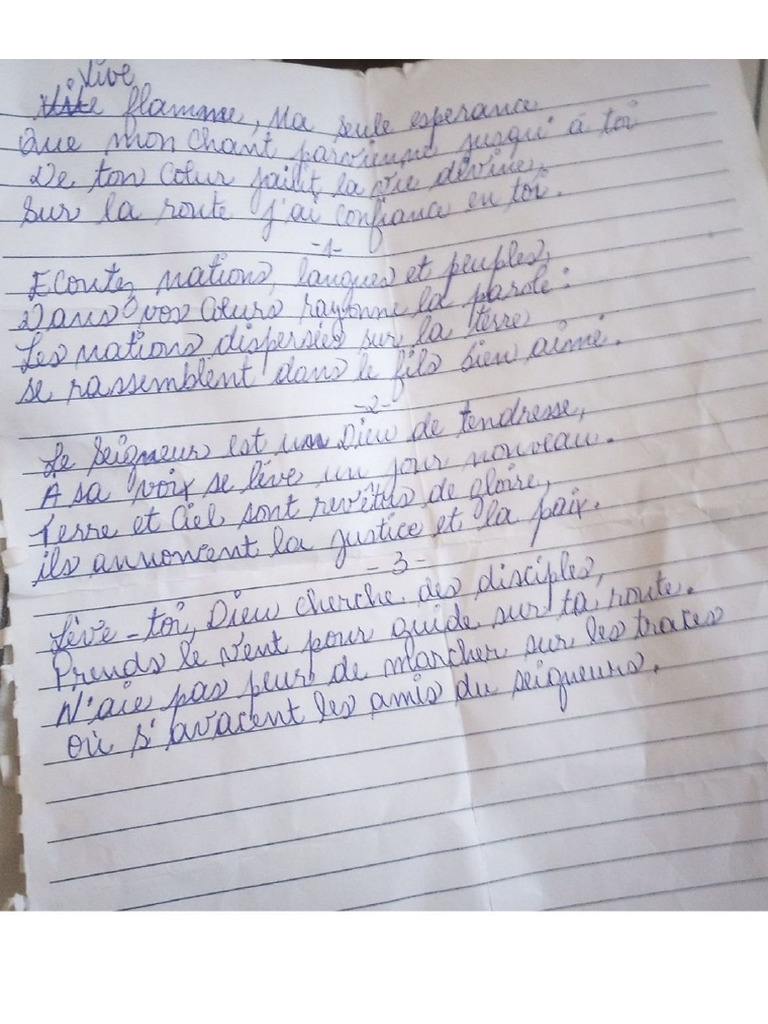 Vive
flamme, Ma seule esperance
Que mon chant parvienne jusqu'à toi
De ton Cœur jailit la vie divine,
sur la route j'ai confiance en toi.
-1-
Ecoutez nations, langues et peuples,
Dans vos Cœurs rayonne la parole:
Les nations dispersées sur la terre
se rassemblent dans le fils bien aimé.
-2-
Le Seigneur est un Dieu de tendresse,
A sa voix se lève un jour nouveau.
Terre et Ciel sont revêtus de gloire,
ils annoncent la justice et la paix.
-3-
Lève-toi, Dieu cherche des disciples,
Prends le vent pour guide sur ta route.
N'aie pas peur de marcher sur les traces
où s'avacent les amis du seigneurs.